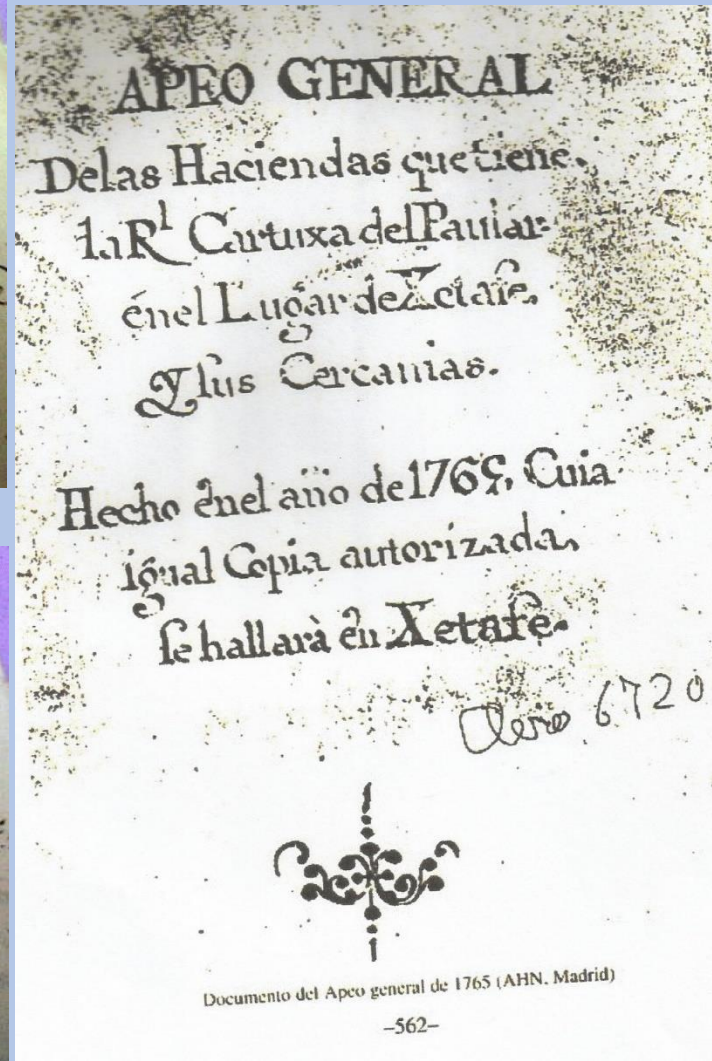 APEO GENERAL
Delas Haciendas que tiene
la Rl Cartuxa del Paular
énel Lugar de Xetafe,
Y sus Cercanias.
Hecho ênel año de 1765. Cuia
igual Copia autorizada,
se hallarà ên Xetafe.
Clero 6720
Documento del Apeo general de 1765 (AHN. Madrid)
–562–